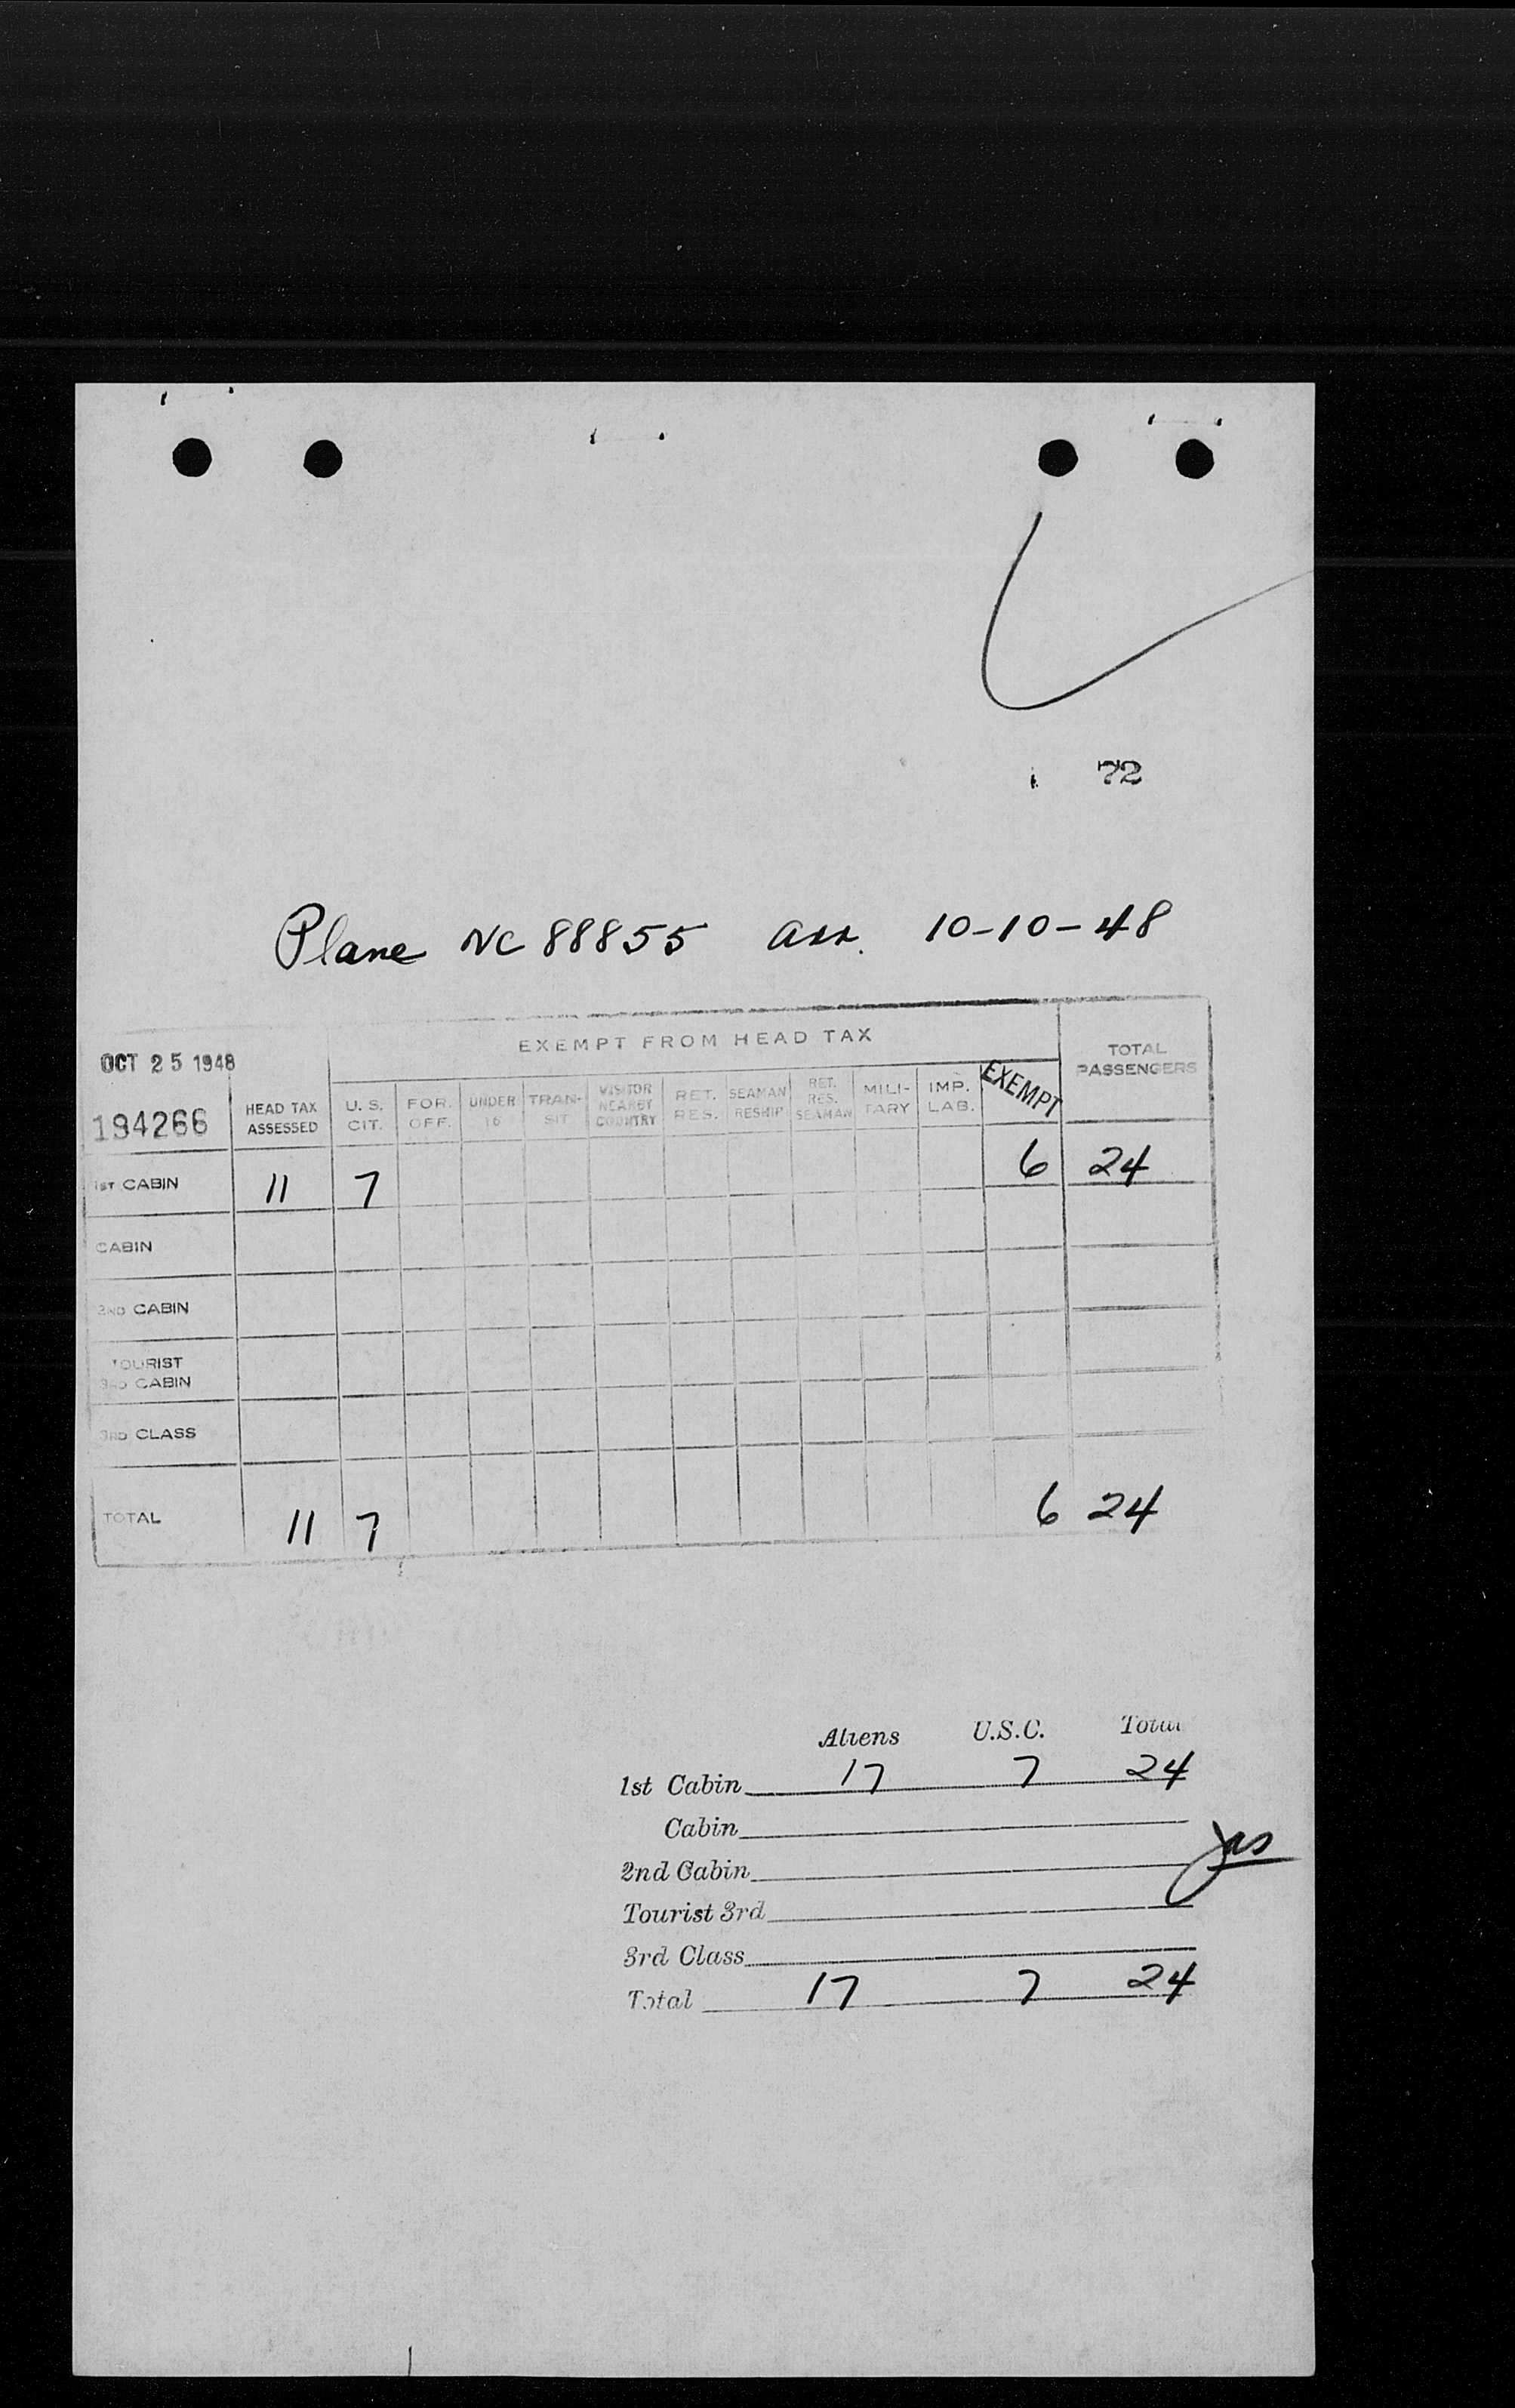 72
Plane NC 88855 arr. 10-10-48
EXEMPT FROM HEAD TAX
OCT 25 1948
194266
HEAD TAX ASSESSED
U. S. CIT.
FOR. OFF.
UNDER 16
TRAN-SIT
VISITOR NEARBY COUNTRY
RET. RES.
SEAMAN RESHIP
RET. RES. SEAMAN
MILI-TARY
IMP. LAB.
EXEMPT
TOTAL PASSENGERS
1ST CABIN 11 7 6 24
CABIN
2ND CABIN
TOURIST
3RD CABIN
3RD CLASS
TOTAL 11 7 6 24
Aliens U.S.C. Total
1st Cabin 17 7 24
Cabin
2nd Cabin
Tourist 3rd
3rd Class
Total 17 7 24